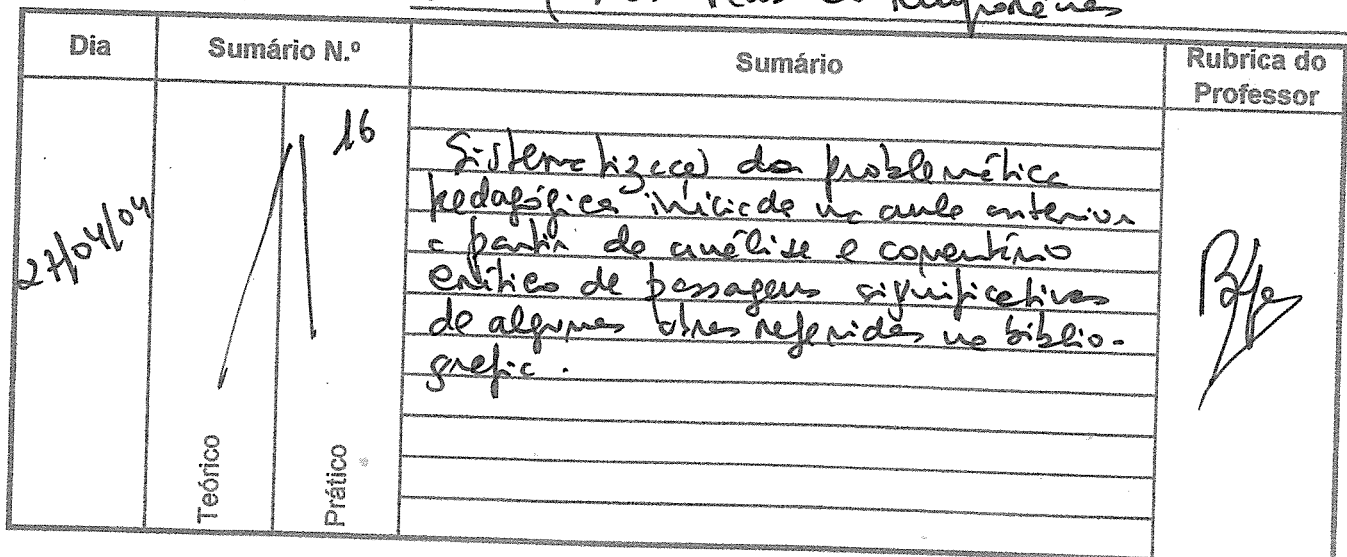 Dia
Sumário N.º
Sumário
Rubrica do
Professor
27/04/04
16
Sistematização da problemática
pedagógica iniciada na aula anterior
a partir da análise e comentário
crítico de passagens significativas
de algumas obras referidas na biblio-
grafia.
Teórico
Prático